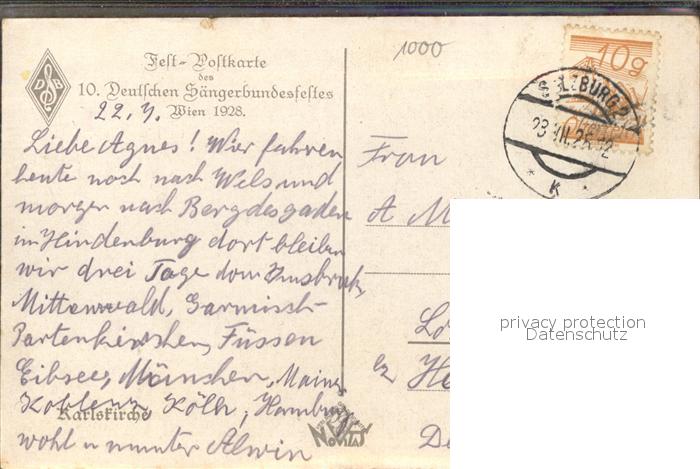 Fest-Postkarte
des
10. Deutschen Sängerbundesfestes
Wien 1928.
D S B
22.7.
1000
10g
SALZBURG 2
K
Liebe Agnes! Wir fahren
heute noch nach Wels und
morgen nach Bergdesgaden
im Hindenburg dort bleiben
wir drei Tage dom Innsbruck,
Mittenwald, Garmisch-
Partenkirchen, Füssen
Eibsee, München, Mainz
Koblenz, Köln, Hamburg
Karlskirche
wohl u munter Alwin
NOVITAS
Frau
A M
bz
De
privacy protection
Datenschutz